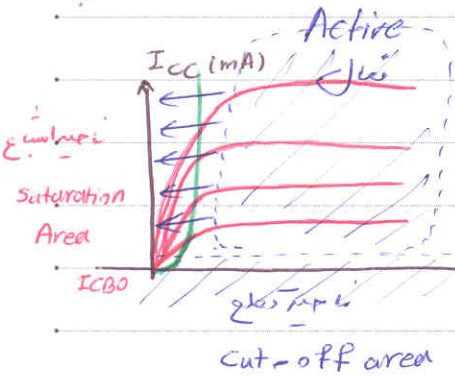 Active
فعال
ICC (mA)
ناحیه اشباع
Saturation
Area
ICBO
ناحیه قطع
Cut-off area